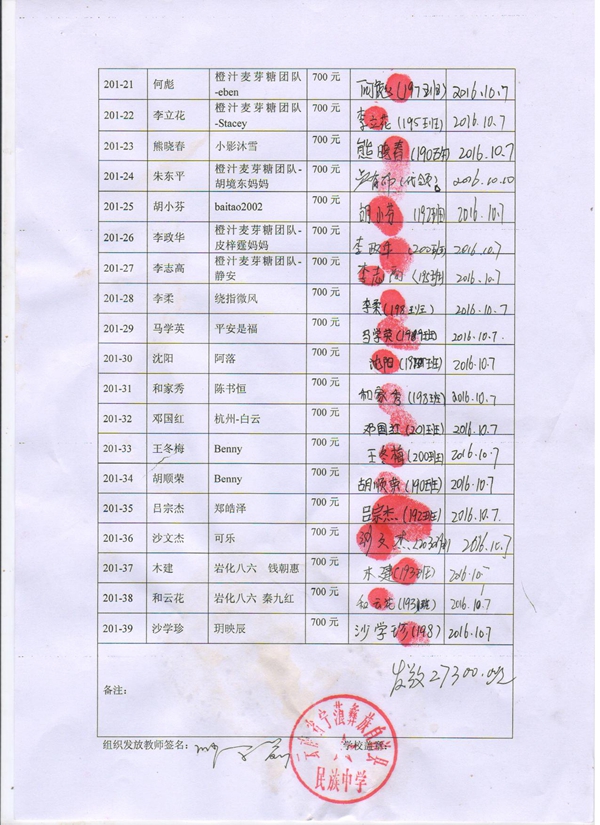 201-21 何彪 橙汁麦芽糖团队 700 元 (197班) 2016.10.7
-eben
201-22 李立花 橙汁麦芽糖团队 700 元 李立花 (195班) 2016.10.7
-Stacey
201-23 熊晓春 小影沐雪 700 元 熊晓春 (190班) 2016.10.7
201-24 朱东平 橙汁麦芽糖团队- 700 元 (代领) 2016.10.10
胡境东妈妈
201-25 胡小芬 baitao2002 700 元 胡小芬 (192班) 2016.10.7
201-26 李政华 橙汁麦芽糖团队- 700 元 李政华 (200班) 2016.10.7
皮梓霆妈妈
201-27 李志高 橙汁麦芽糖团队- 700 元 李志高 2016.10.7
静安
201-28 李柔 绕指微风 700 元 李柔 (198班) 2016.10.7
201-29 马学英 平安是福 700 元 马学英 2016.10.7.
201-30 沈阳 阿落 700 元 沈阳 2016.10.7
201-31 和家秀 陈书恒 700 元 和家秀 (198班) 2016.10.7
201-32 邓国红 杭州-白云 700 元 邓国红 (201班) 2016.10.7
201-33 王冬梅 Benny 700 元 王冬梅 (200班) 2016.10.7
201-34 胡顺荣 Benny 700 元 胡顺荣 (190班) 2016.10.7
201-35 吕宗杰 郑皓泽 700 元 吕宗杰 (192班) 2016.10.7.
201-36 沙文杰 可乐 700 元 沙文杰 2016.10.7
201-37 木建 岩化八六 钱朝惠 700 元 木建 (193班) 2016.10.7
201-38 和云花 岩化八六 秦九红 700 元 和云花 (193班) 2016.10.7
201-39 沙学珍 玥映辰 700 元 沙学珍 (198) 2016.10.7
发放27300.00元
备注:
组织发放教师签名: 学校盖章:
云南省宁蒗彝族自治县
民族中学